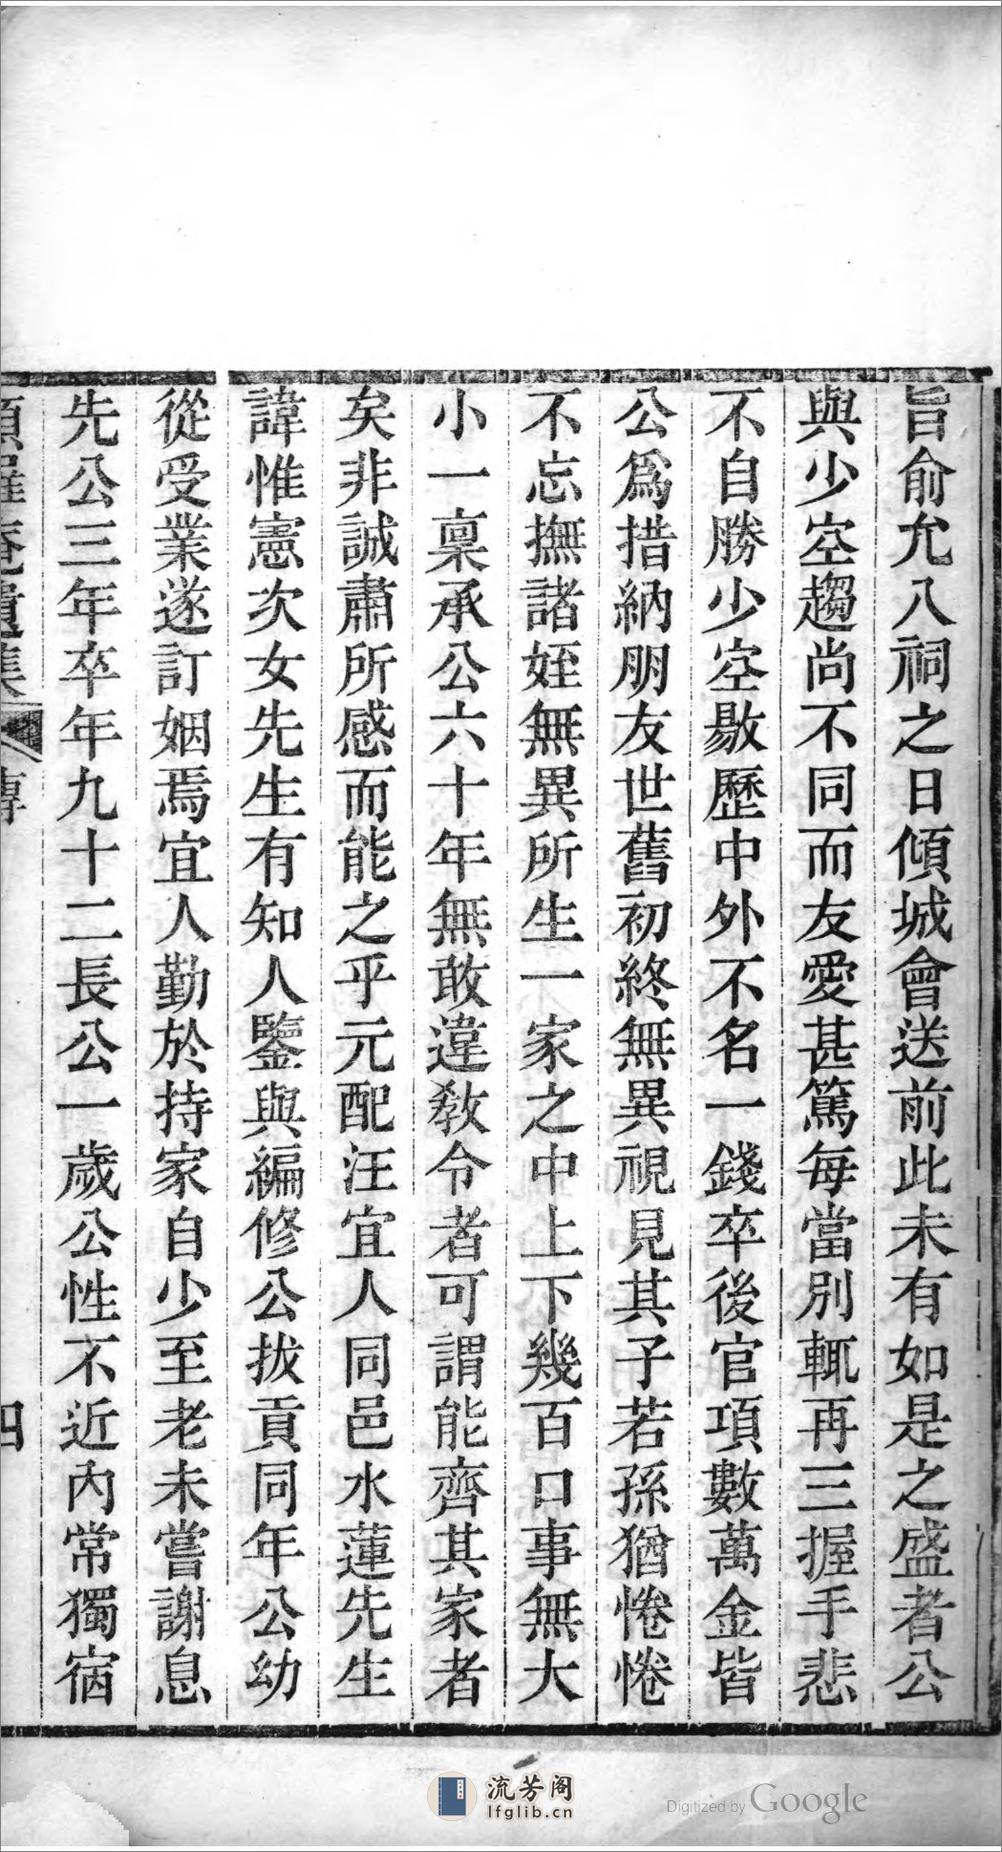 旨俞允入祠之日傾城會送前此未有如是之盛者公
與少空趨尚不同而友愛甚篤每當別輒再三握手悲
不自勝少空敭歷中外不名一錢卒後官項數萬金皆
公爲措納朋友世舊初終無異視見其子若孫猶惓惓
不忘撫諸姪無異所生一家之中上下幾百口事無大
小一稟承公六十年無敢違敎令者可謂能齊其家者
矣非誠肅所感而能之乎元配汪宜人同邑水蓮先生
諱惟憲次女先生有知人鑒與編修公拔貢同年公幼
從受業遂訂姻焉宜人勤於持家自少至老未嘗謝息
先公三年卒年九十二長公一歲公性不近內常獨宿
頻羅庵遺集 傳 四
流芳阁
lfglib.cn
Digitized by Google